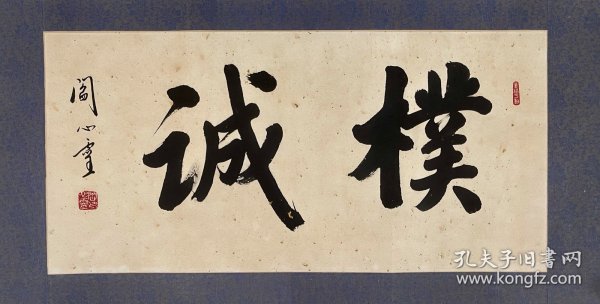 樸诚
阎心雪
孔夫子旧书网
www.kongfz.com